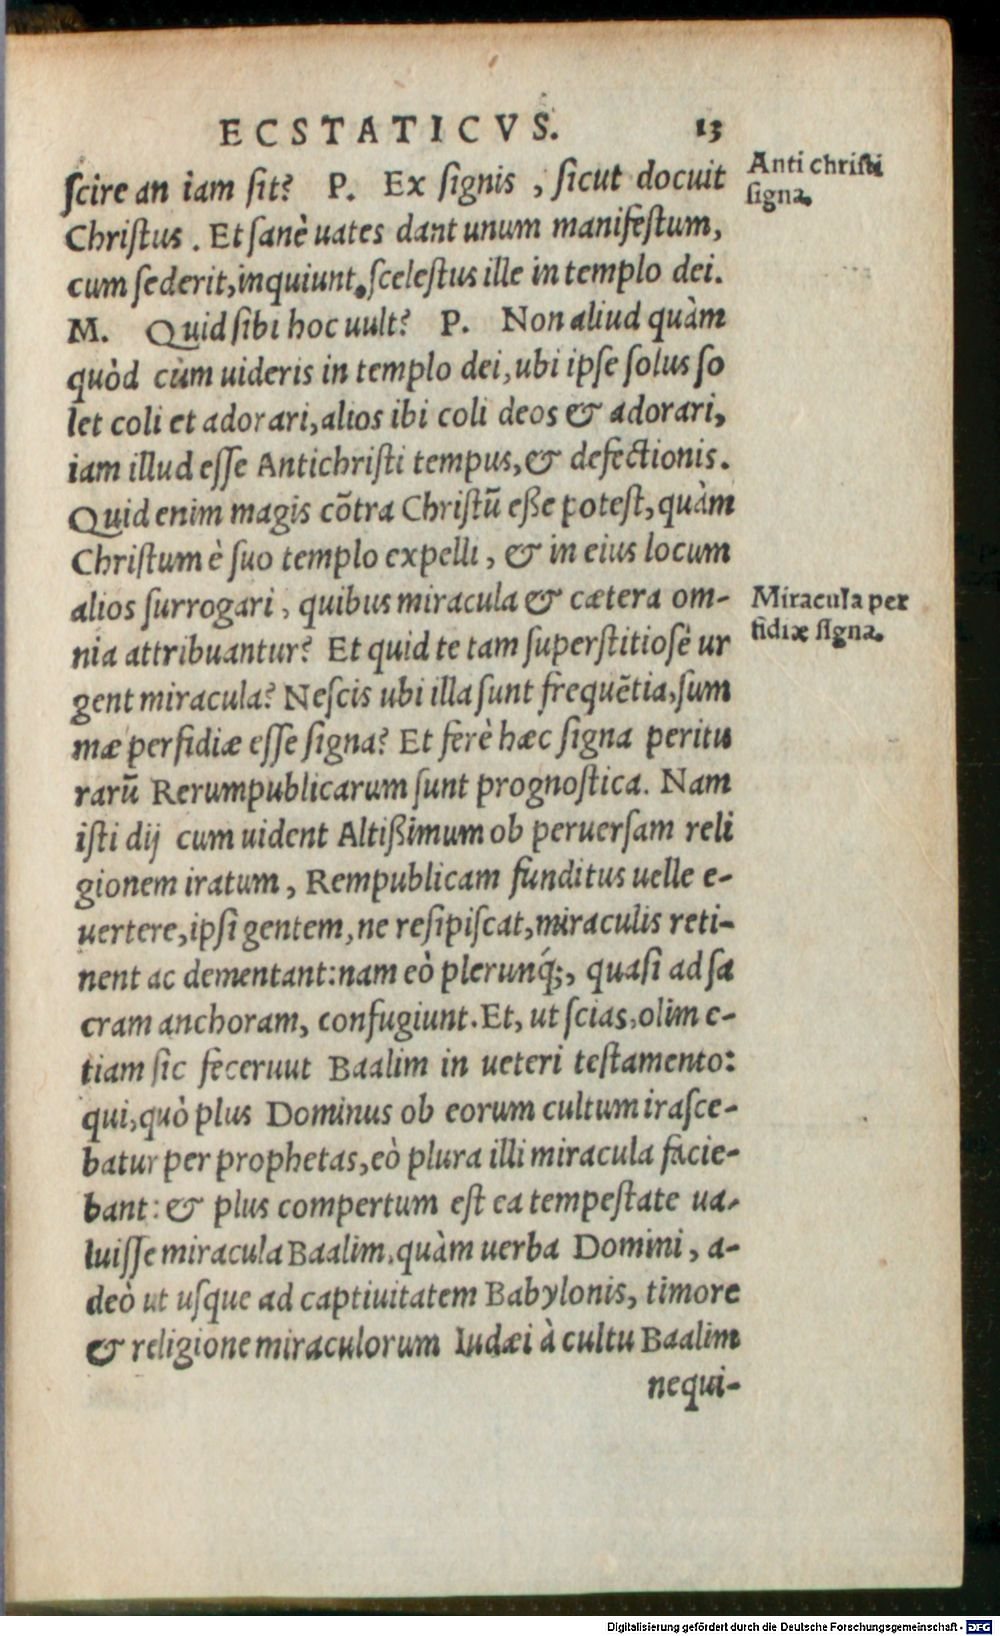 ECSTATICVS. 13
ſcire an iam ſit? P. Ex ſignis, ſicut docuit
Anti chriſti
ſigna.
Chriſtus. Et ſanè uates dant unum manifeſtum,
cum ſederit, inquiunt, ſceleſtus ille in templo dei.
M. Quid ſibi hoc uult? P. Non aliud quàm
quòd cùm uideris in templo dei, ubi ipſe ſolus ſo
let coli et adorari, alios ibi coli deos & adorari,
iam illud eſſe Antichriſti tempus, & defectionis.
Quid enim magis cõtra Chriſtũ eße poteſt, quàm
Chriſtum è ſuo templo expelli, & in eius locum
alios ſurrogari, quibus miracula & cætera om-
Miracula per
fidiæ ſigna.
nia attribuantur? Et quid te tam ſuperſtitioſè ur
gent miracula? Neſcis ubi illa ſunt frequẽtia, ſum
mæ perfidiæ eſſe ſigna? Et ferè hæc ſigna peritu
rarũ Rerumpublicarum ſunt prognoſtica. Nam
iſti dij cum uident Altißimum ob peruerſam reli
gionem iratum, Rempublicam funditus uelle e-
uertere, ipſi gentem, ne reſipiſcat, miraculis reti-
nent ac dementant: nam eò plerunq́;, quaſi ad ſa
cram anchoram, confugiunt. Et, ut ſcias, olim e-
tiam ſic feceruut Baalim in ueteri teſtamento:
qui, quò plus Dominus ob eorum cultum iraſce-
batur per prophetas, eò plura illi miracula facie-
bant: & plus compertum eſt ea tempeſtate ua-
luiſſe miracula Baalim, quàm uerba Domini, a-
deò ut uſque ad captiuitatem Babylonis, timore
& religione miraculorum Iudæi à cultu Baalim
nequi-
Digitalisierung gefördert durch die Deutsche Forschungsgemeinschaft - DFG